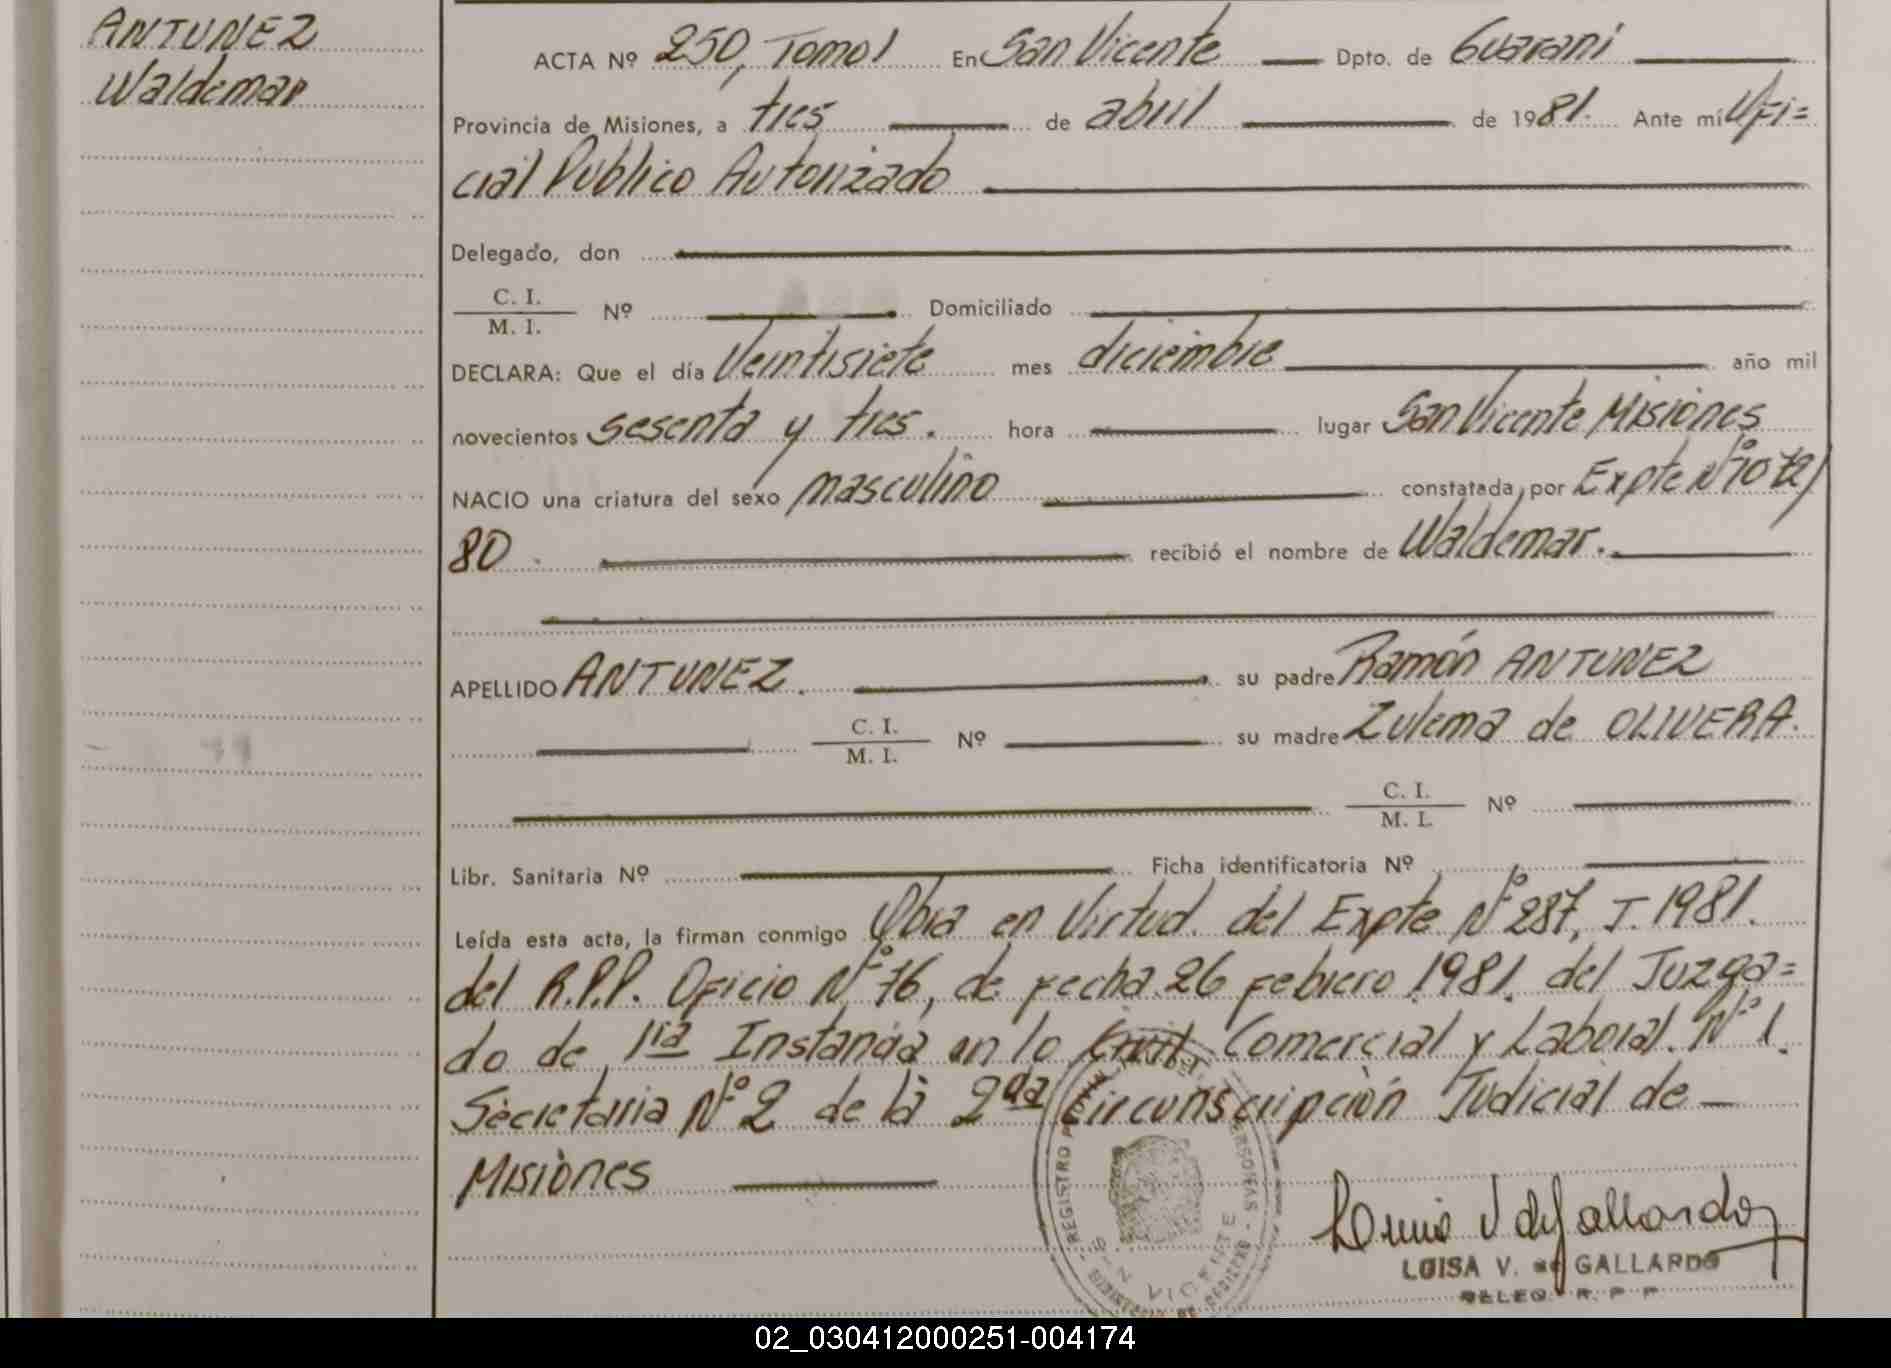 ANTUNEZ
Waldemar
ACTA Nº 250, Tomo I En San Vicente Dpto. de Guaraní
Provincia de Misiones, a tres de abril de 1981. Ante mí Ofi=
cial Publico Autorizado
Delegado, don
C. I.
M. I. Nº Domiciliado
DECLARA: Que el día Veintisiete mes diciembre año mil
novecientos sesenta y tres. hora lugar San Vicente Misiones
NACIO una criatura del sexo masculino constatada por Expte Nº 1072/
80 recibió el nombre de Waldemar.
APELLIDO ANTUNEZ. su padre Ramón ANTUNEZ
C. I.
M. I. Nº su madre Zulema de OLIVERA.
C. I.
M. I. Nº
Libr. Sanitaria Nº Ficha identificatoria Nº
Leída esta acta, la firman conmigo Obra en Virtud. del Expte Nº 287, J. 1981.
del R.P.P. Oficio Nº 76, de fecha 26 febrero 1981. del Juzga=
do de 1ra Instancia en lo Civil Comercial y Laboral. Nº 1.
Secretaria Nº 2 de la 2da Circunscripción Judicial de
Misiones
REGISTRO PERSONAS
VICENTE
LUISA V. de GALLARDO
DELEG. R. P. P.
02_030412000251-004174